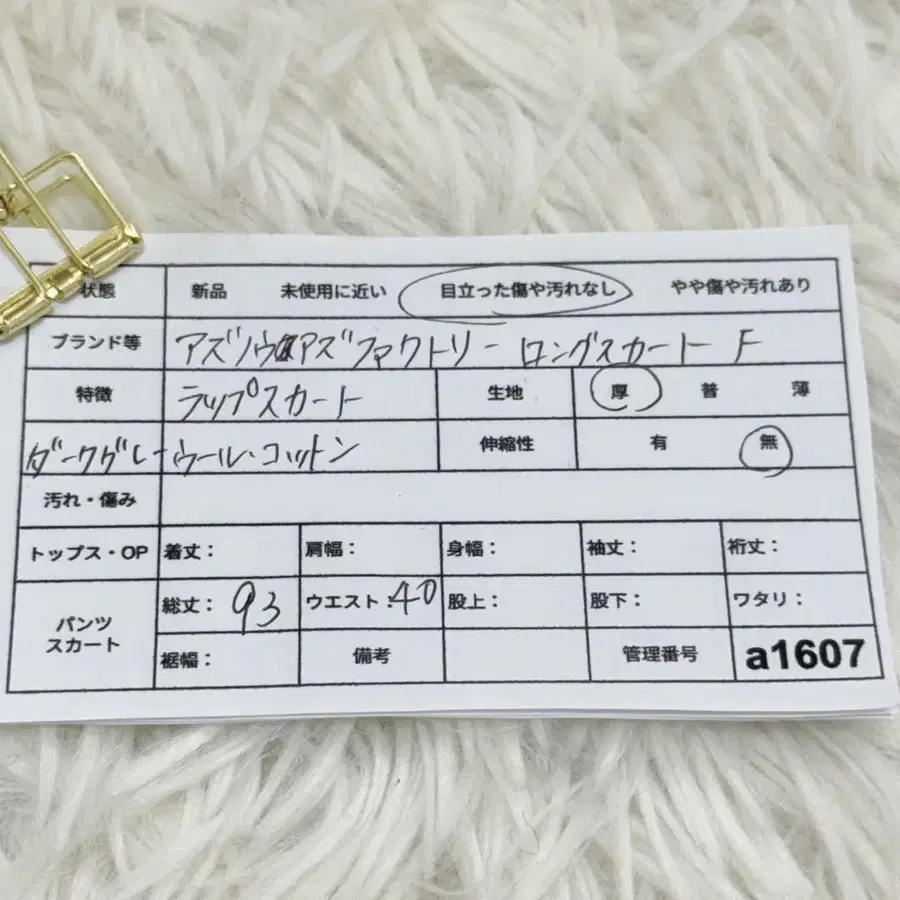 状態 新品 未使用に近い 目立った傷や汚れなし やや傷や汚れあり
ブランド等 アズノウアズファクトリー ロングスカート F
特徴 ラップスカート 生地 厚 普 薄
ダークグレー ウール・コットン 伸縮性 有 無
汚れ・傷み
トップス・OP 着丈： 肩幅： 身幅： 袖丈： 裄丈：
パンツ スカート 総丈： 93 ウエスト：40 股上： 股下： ワタリ：
裾幅： 備考 管理番号 a1607